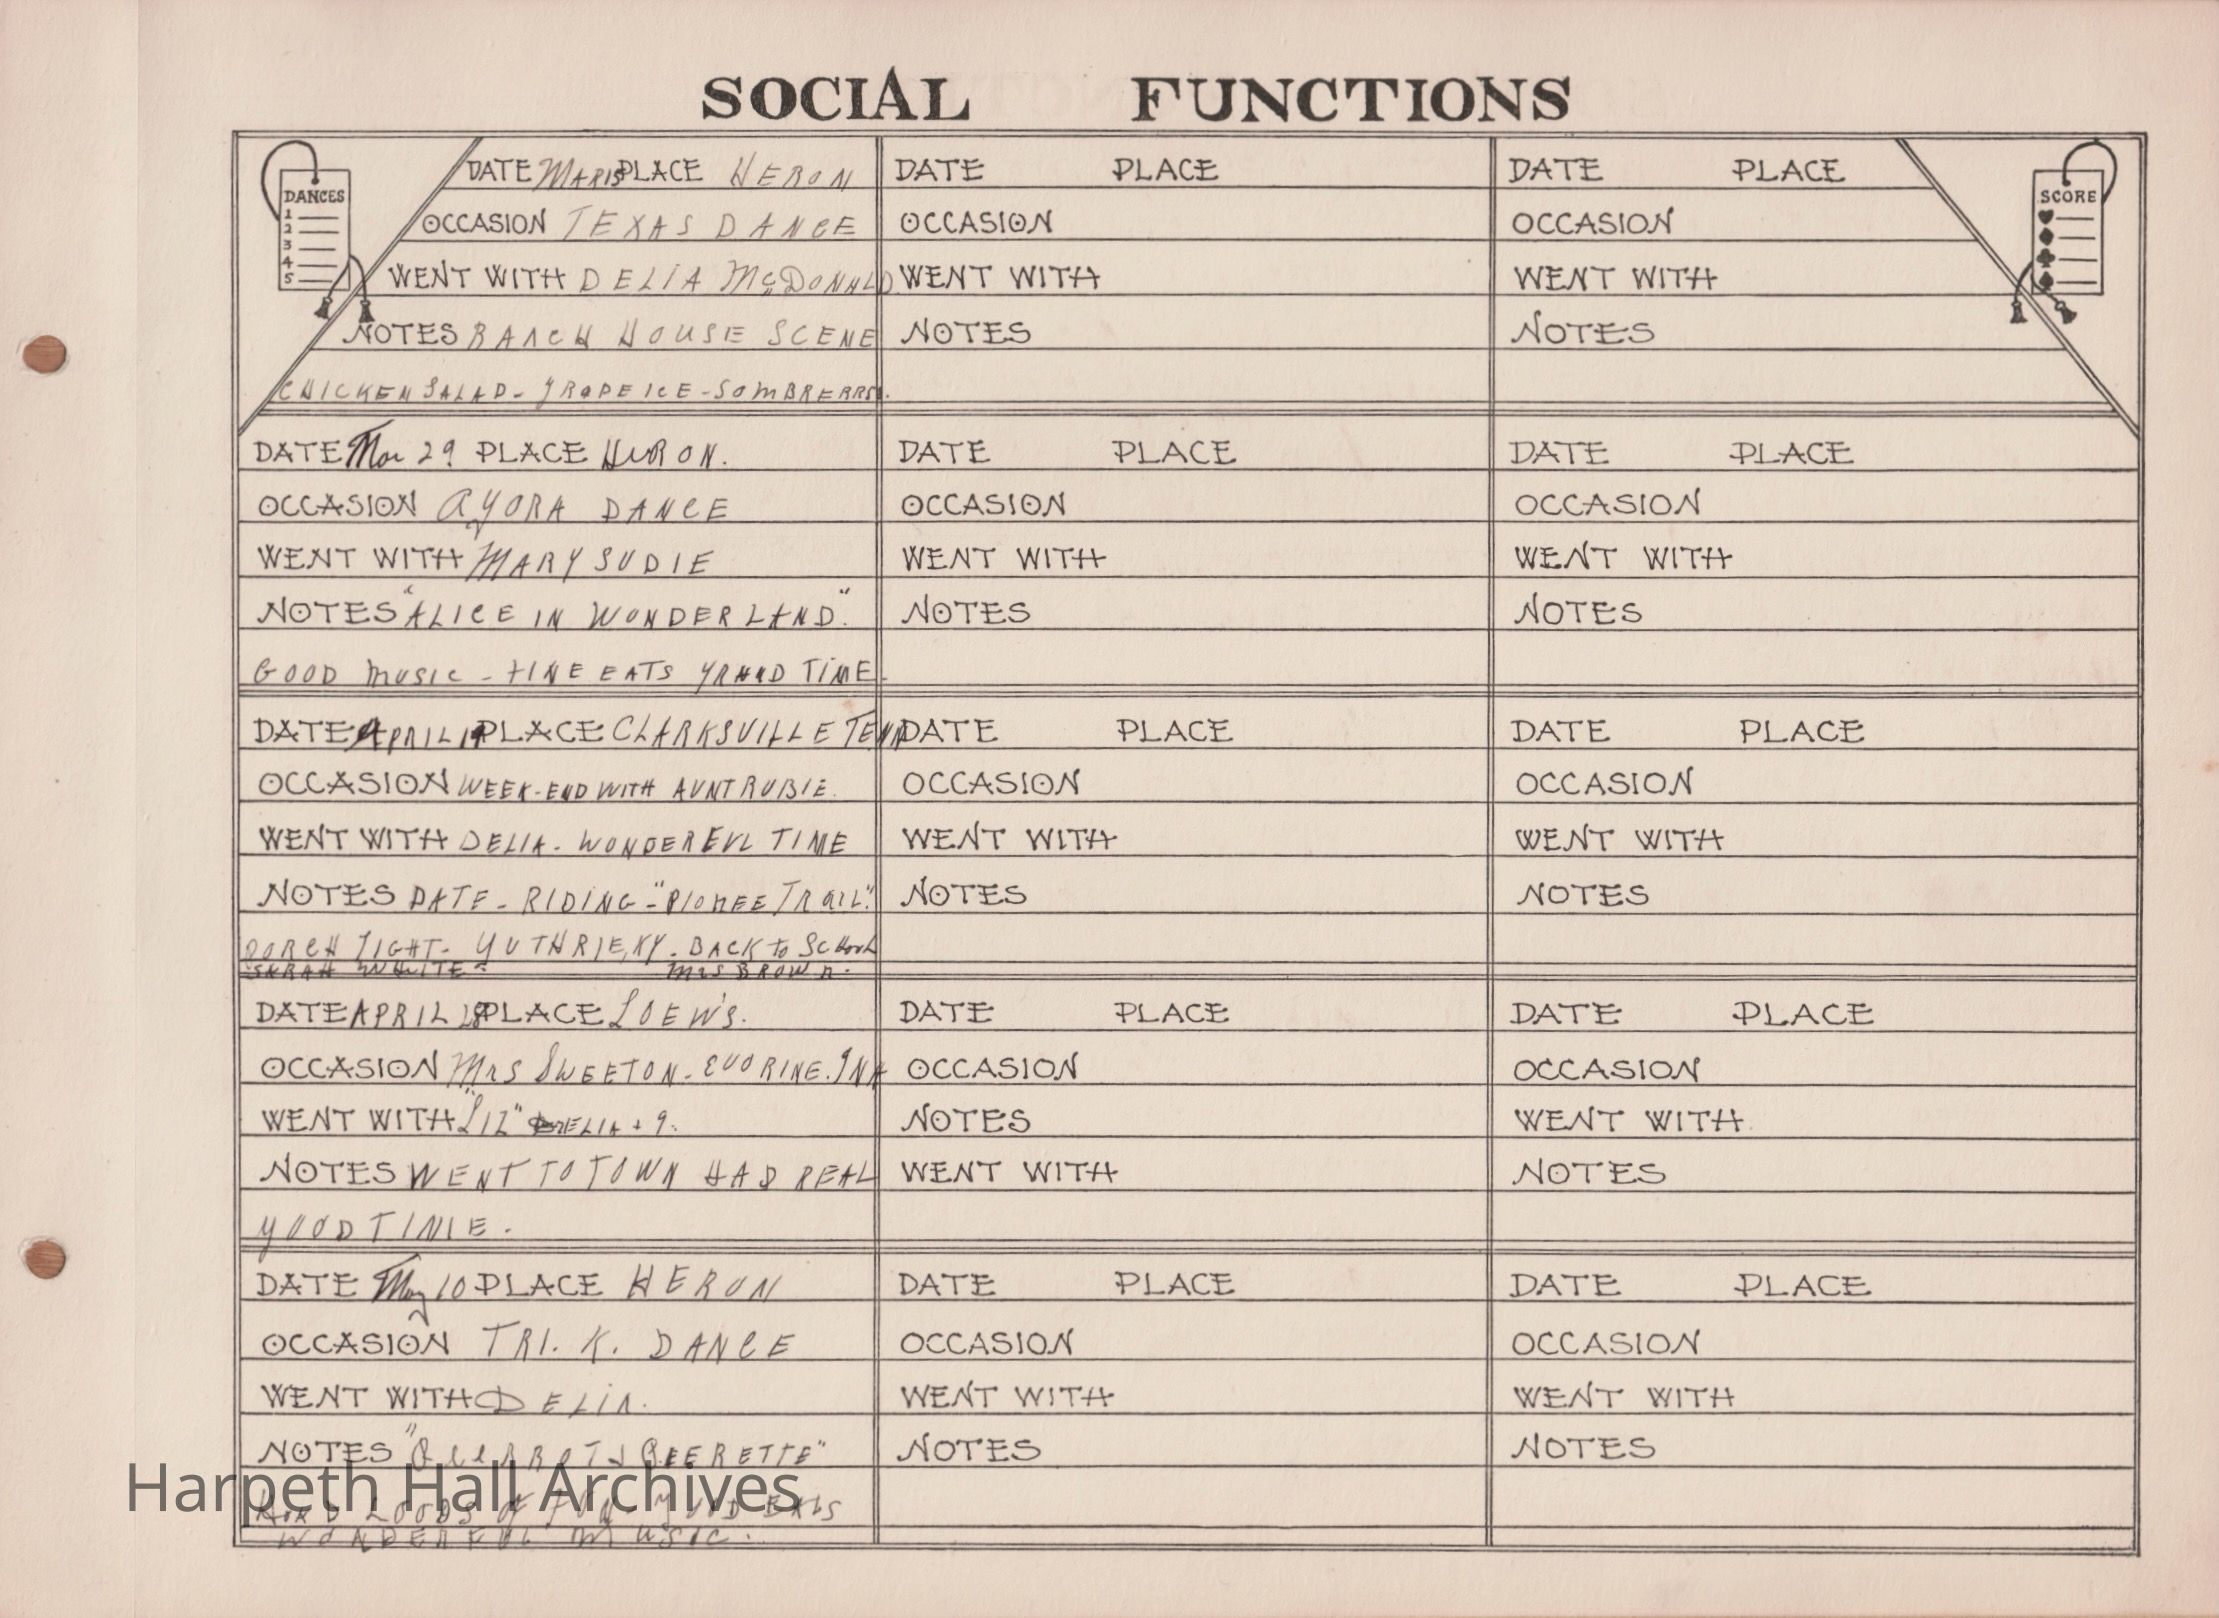 SOCIAL FUNCTIONS
DANCES
1
2
3
4
5
DATE MAR 15 PLACE HERON
OCCASION TEXAS DANCE
WENT WITH DELIA McDONALD
NOTES RANCH HOUSE SCENE
CHICKEN SALAD - GRAPE ICE - SOMBRERRS.
DATE Mar 29 PLACE HERON.
OCCASION AGORA DANCE
WENT WITH MARY SUDIE
NOTES "ALICE IN WONDERLAND".
GOOD MUSIC - FINE EATS GRAND TIME.
DATE APRIL PLACE CLARKSVILLE TENN
OCCASION WEEK-END WITH AUNT RUBIE.
WENT WITH DELIA. WONDERFUL TIME
NOTES DATE - RIDING - "PIONEE TRAIL".
PORCH LIGHT - GUTHRIE, KY. BACK to School
SARAH WHITE - MRS BROWN.
DATE APRIL 28 PLACE LOEW'S.
OCCASION MRS SWEETON - EUORINE. INA
WENT WITH "LIZ" DELIA + 9.
NOTES WENT TO TOWN HAD REAL
GOOD TIME.
DATE May 10 PLACE HERON
OCCASION TRI. K. DANCE
WENT WITH DELIA.
NOTES & PEERETTE"
HAD LOODS of FUN - GOOD EATS
WONDERFUL MUSIC.
DATE PLACE
OCCASION
WENT WITH
NOTES
DATE PLACE
OCCASION
WENT WITH
NOTES
DATE PLACE
OCCASION
WENT WITH
NOTES
DATE PLACE
OCCASION
NOTES
WENT WITH
DATE PLACE
OCCASION
WENT WITH
NOTES
DATE PLACE
OCCASION
WENT WITH
NOTES
SCORE
DATE PLACE
OCCASION
WENT WITH
NOTES
DATE PLACE
OCCASION
WENT WITH
NOTES
DATE PLACE
OCCASION
WENT WITH
NOTES
DATE PLACE
OCCASION
WENT WITH
NOTES
Harpeth Hall Archives